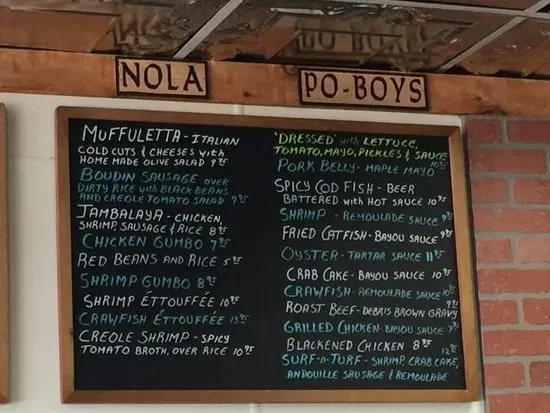 NOLA
PO-BOYS
MUFFULETTA - ITALIAN
COLD CUTS & CHEESES WITH
HOME MADE OLIVE SALAD 9.95
BOUDIN SAUSAGE OVER
DIRTY RICE with BLACK BEANS
AND CREOLE TOMATO SALAD 9.95
JAMBALAYA - CHICKEN,
SHRIMP, SAUSAGE & RICE 8.95
CHICKEN GUMBO 7.95
RED BEANS AND RICE 5.95
SHRIMP GUMBO 8.95
SHRIMP ÉTTOUFFÉE 10.95
CRAWFISH ÉTTOUFFÉE 13.95
CREOLE SHRIMP - SPICY
TOMATO BROTH, OVER RICE 10.95
"DRESSED" with LETTUCE,
TOMATO, MAYO, PICKLES & SAUCE
PORK BELLY - MAPLE MAYO 10.95
SPICY COD FISH - BEER
BATTERED with HOT SAUCE 10.95
SHRIMP - REMOULADE SAUCE 9.95
FRIED CATFISH - BAYOU SAUCE 9.95
OYSTER - TARTAR SAUCE 11.95
CRAB CAKE - BAYOU SAUCE 10.95
CRAWFISH - REMOULADE SAUCE 10.95
ROAST BEEF - DEBRIS BROWN GRAVY 9.95
GRILLED CHICKEN - BAYOU SAUCE 7.95
BLACKENED CHICKEN 8.95
SURF-N-TURF - SHRIMP, CRAB CAKE, 12.95
ANDOUILLE SAUSAGE & REMOULADE